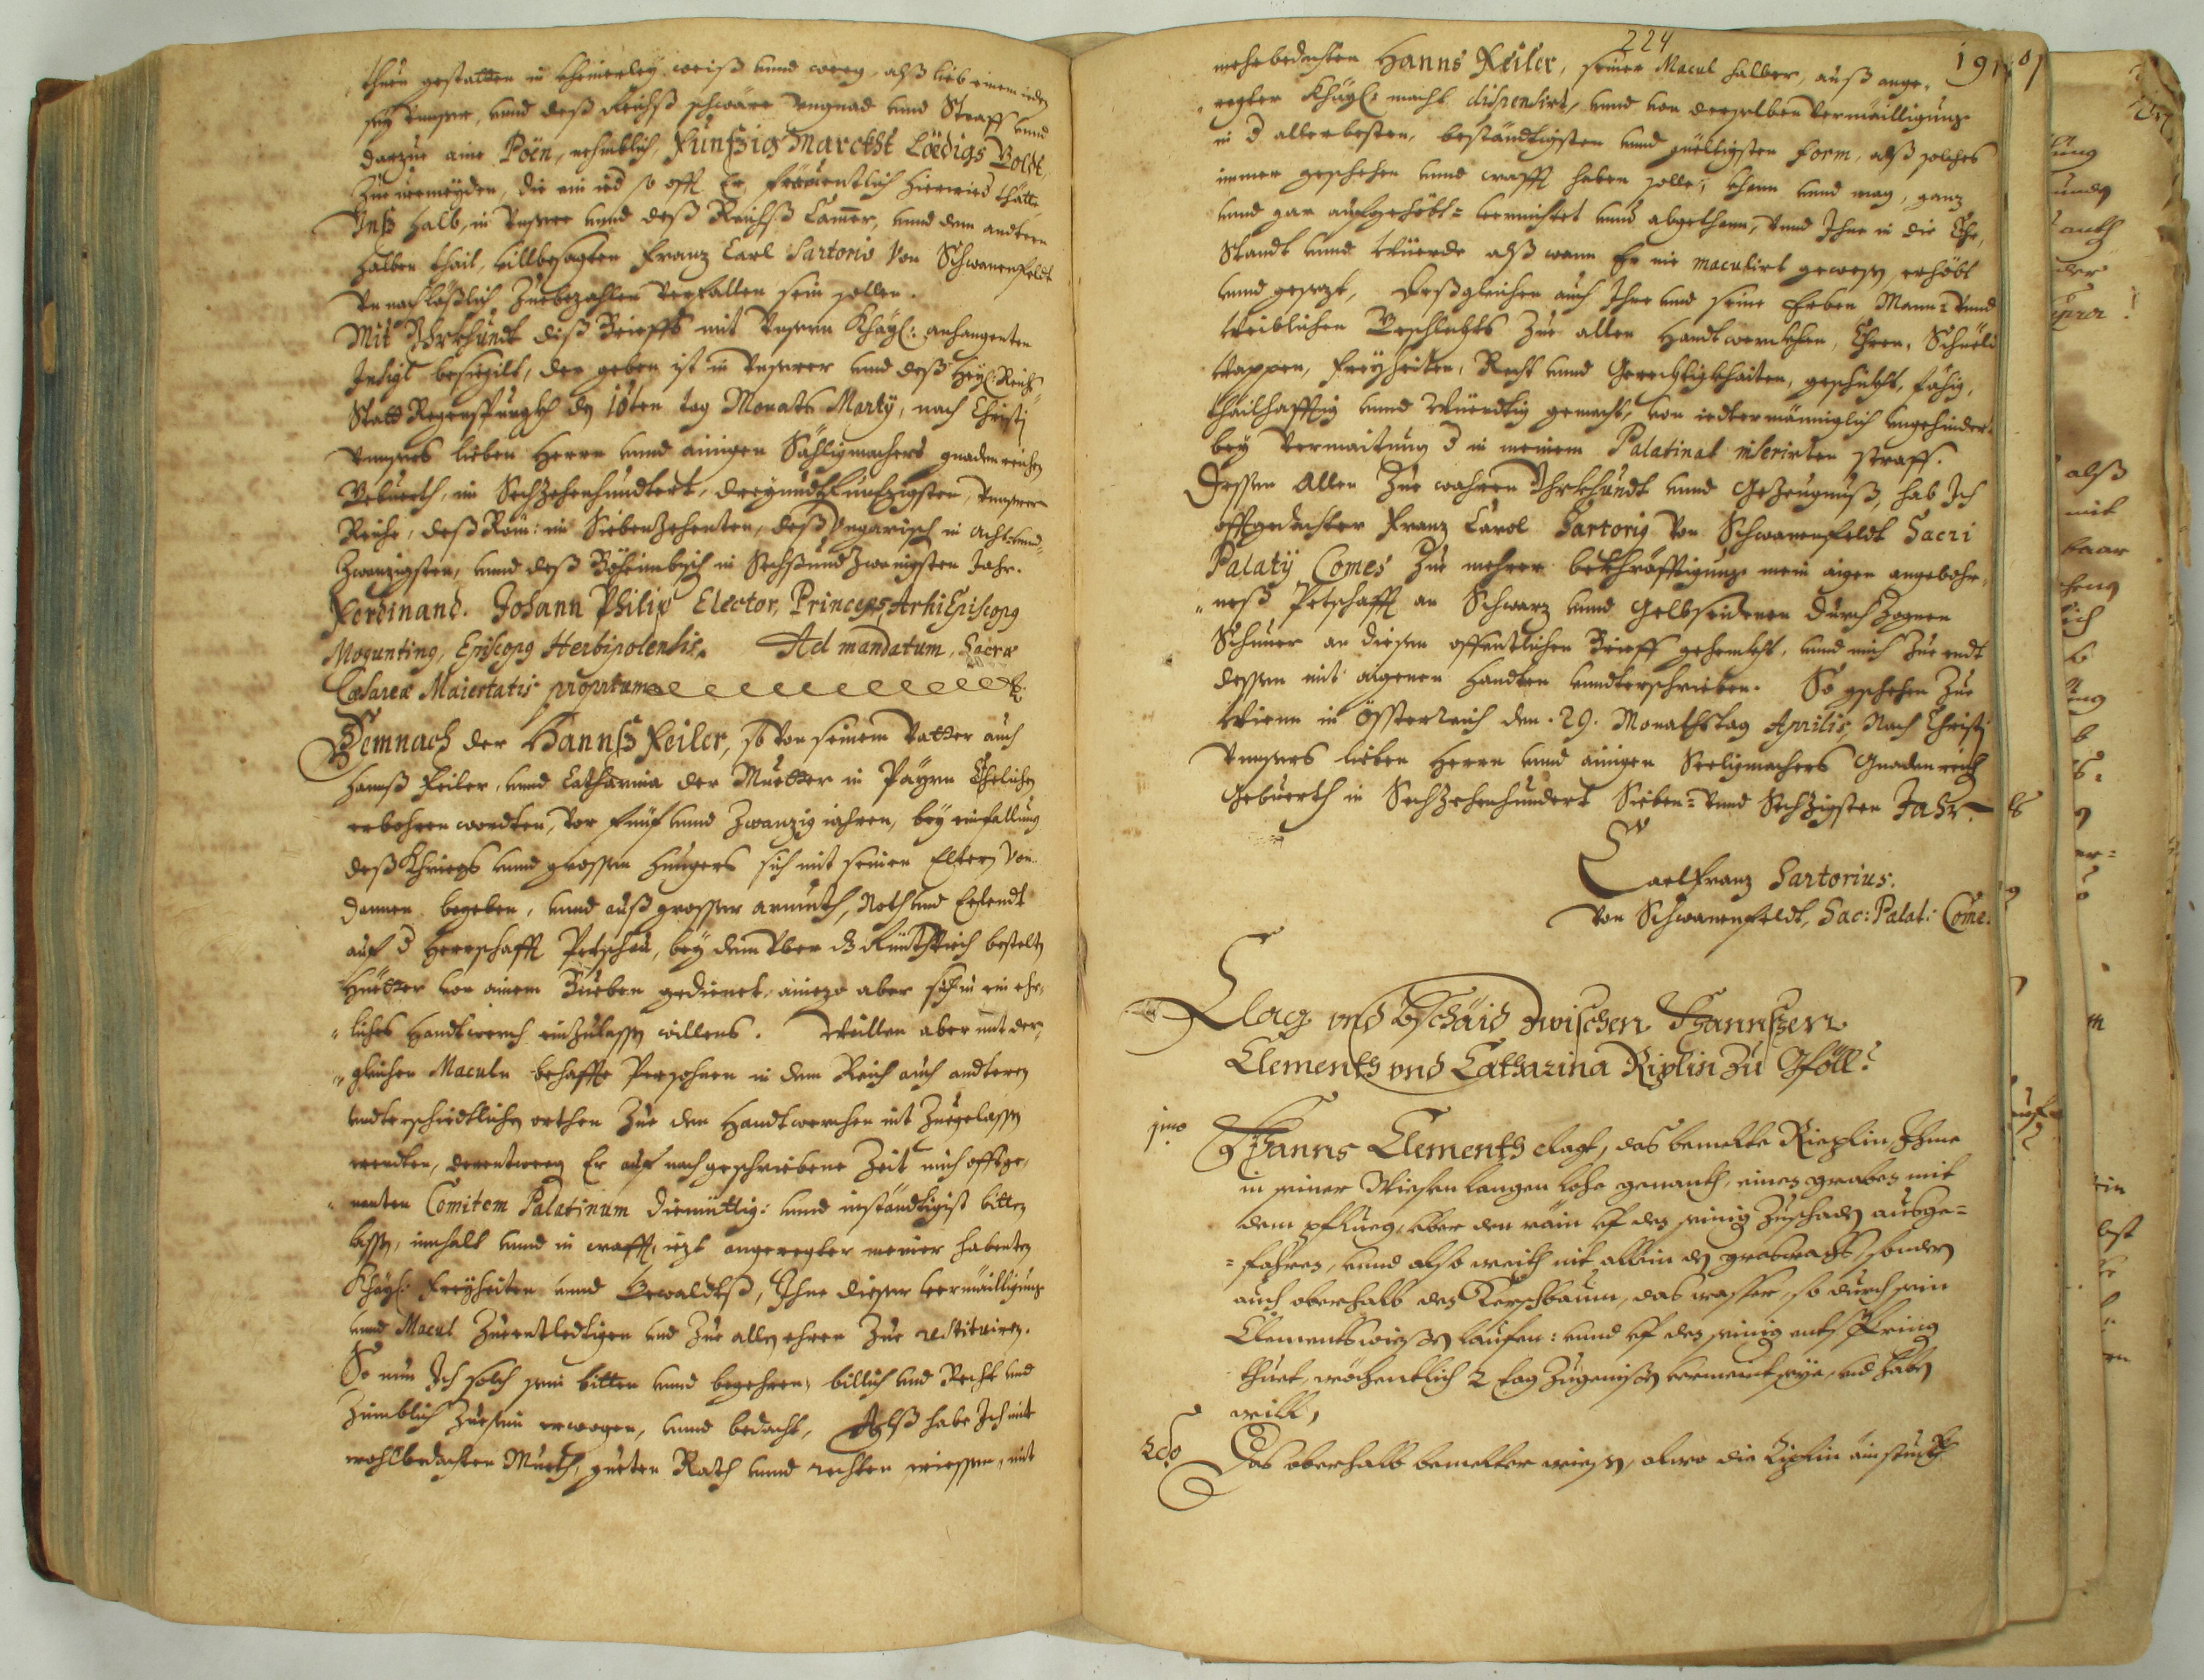 thuen gestatten in kheinerley weiß vnnd weeg, alß lieb einem ieden
sey Vnnser, vnnd deß Reichß schwäre Vngnad vnnd Straff vnnd
darzue eine Pöen, nehmblich, Fünfzig Marckht Löedigs Goldt,
Zue vermeyden, die ein ied so offt Er freuentlich hierwied thätte
Vnß halb, in Vnnser vnnd deß Reichß Camer, vnnd dem andern
halben thail, villbesagten Franz Carl Sartorio Von Schwanenfeldt
Vnnachläßlich Zuebezahlen verfallen sein sollen.
Mit Vhrkhundt diß Brieffs mit Vnnserm Khayl: anhangenten
Insigl besigilt, der geben ist in Vnnserer vnnd deß Heyl: Reichs
Statt Regenspurgkh den 10ten tag Monats Marty, nach Christi
Vnnsers lieben Herrn vnnd ainigen Sähligmachers gnadenreichen
Gebuerth, im Sechzehenhundtert, dreyundtfunfzigsten, Vnnserer
Reiche, deß Röm: im Siebenzehenten, deß Vngarisch in Acht vnnd
Zwanzigsten, vnnd deß Böhembisch in Sechßundzwanigsten Jahr.
Ferdinand. Johann Philip Elector, Princeps, Arhi Episcopg
Mogunting, Episcopg Herbipolensis. Ad mandatum, Sacræ
Cæsareæ Maiestatis proprium
Demnach der Hannß Feiler, so von seinem Vatter auch
Hannß Feiler, vnnd Catharina der Muetter in Payrn Ehelichen
erbohren wordten, Vor fünf vnnd Zwanzig iahren, bey einfallung
deß Khriegs vnnd grossen hungers sich mit seinen Eltern Von
dannen begeben, vnnd auß grosser armuth, Noth vnd Ellendt
auf d Herrschafft Petschau, bey dem Vber d Rindtviech bestelten
Huetter von einem Bueben gedienet, aniezo aber sich in ein ehr
liches Handtwerch einzulassen willens. Weillen aber mit der
gleichen Maculn behaffte Persohnen in dem Reich auch andteren
vndterschiedtlichen orthen Zue den Handtwerchen nit Zuegelassen
werdten, derentweeg Er auf nachgeschriebene Zeit mich offtge
nenten Comitem Palatinum diemüttig: vnnd inständtigist bitten
lassen, innhalt vnnd in crafft, iezt angeregter meiner habenten
Khayl: freyheiten vnnd Gewaldtß, Ihne dieser vermailligung
vnnd Macul Zueentledtigen vnd Zue allen ehren Zue restituiren.
So nun Ich solch sein bitten vnnd begehren, billich vnd Recht vnd
Zimblich Zuesein erwogen, vnnd bedacht, Alß habe Ich mit
wohlbedachten Mueth, gueten Rath vnnd rechten wiessen, mit
224
191
mehrbedachten Hanns Feiler, seiner Macul halber, auß ange
regter Khayl: macht dispensirt, vnnd von derselben Vermailligung
in d allerbesten, beständtigsten vnnd gueltigsten form, alß solches
immer geschehen vnnd crafft haben solle, khann vnnd mag, ganz
vnnd gar aufgehöbt= vernichtet vnnd abgethann, Vnnd Ihne in die Ehr,
Standt vnnd Wüerde alß wann Er nie maculirt gewesen, erhöbt
vnnd gesezt, Deßgleichen auch Ihne vnnd seine Erben Mann= Vnnd
Weiblichen Geschlechts Zue allen Handtwerckhen, Ehren, Schuelt
Wappen, freyheiten, Recht vnnd Gerechtigkhaiten, geschickht, fähig,
thailhafftig vnnd Würdtig gemacht, von iedtermänniglich vngehindert
bey Vermaitung d in meinem Palatinat inserirten straff.
Dessen Allen Zue wahren Vhrkhundt vnnd Gezeugnuß, hab Ich
offtgedachter Franz Carol Sartorig Von Schwanenfeldt Sacri
Palatÿ Comes Zue mehrer bekhräfftigung mein aigen angebohr,
neß Petschafft an Schwarz vnnd Gelbseidenen durchzognen
Schnuer an diesem offentlichen Brieff gehenckht, vnnd mich Zue endt
dessen mit aigenen Handten vndterschrieben. So gschehen Zue
Wienn in Össterreich den .29. Monathstag Aprilis, Nach Christi
Vnnsers lieben Herrn vnnd ainigen Seeligmachers Gnadenreich
Gebuerth in Sechzehenhundert Sieben= Vnnd Sechzigsten Jahr.
Carl Franz Sartorius.
Von Schwanenfeldt, Sac: Palat: Come.
Clag vnd Bschaid zwischen Hannßen
Clementh vnd Catharina Riplin zu Gföll.
1mo
Hanns Clementh clagt, das bemelte Rieplin Ihme
in seiner Wiesen langen lohe genanth, einen graben mit
dem pflueg, vber den rain vf den seinig Zuschaden ausge=
=fahren, vnnd also weith nit allein den graswachs sondern
auch oberhalb den Kerschbaum, das wasser, so durch sein
Clementhswiesen laufen: vnnd vf den seinig entspring
thuet, wöchentlich 2 tag Zugeniesen vermeint seye, vnd haben
will,
2do
Das oberhalb bemelter wiesen, alwo die Riplin ain stuckh